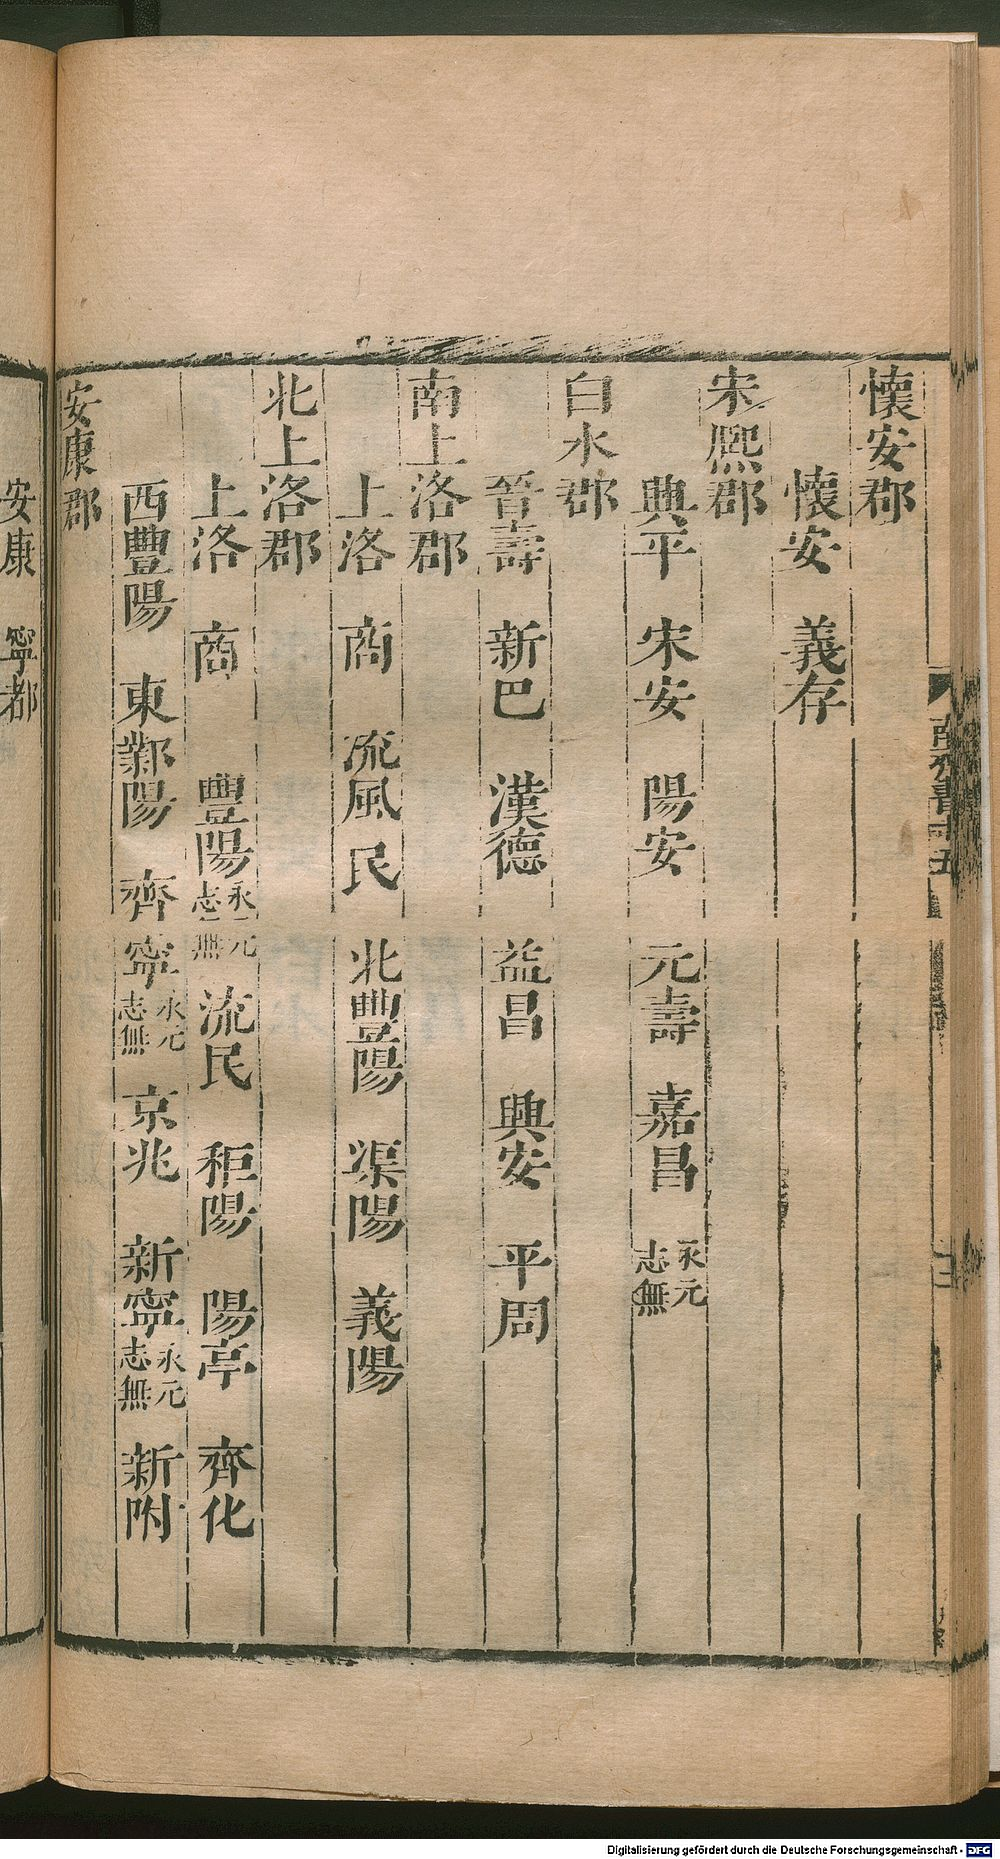 懷安郡
懷安　義存
宋熈郡
興平　宋安　陽安　元壽　嘉昌　永元志無
白水郡
晉壽　新巴　漢德　益昌　興安　平周
南上洛郡
上洛　商　流風民　北豐陽　渠陽　義陽
北上洛郡
上洛　商　豐陽永元志無　流民　秬陽　陽亭　齊化
西豐陽　東鄼陽　齊寧永元志無　京兆　新寧永元志無　新附
安康郡
安康　寧都
南齊書十五
Digitalisierung gefördert durch die Deutsche Forschungsgemeinschaft - DFG